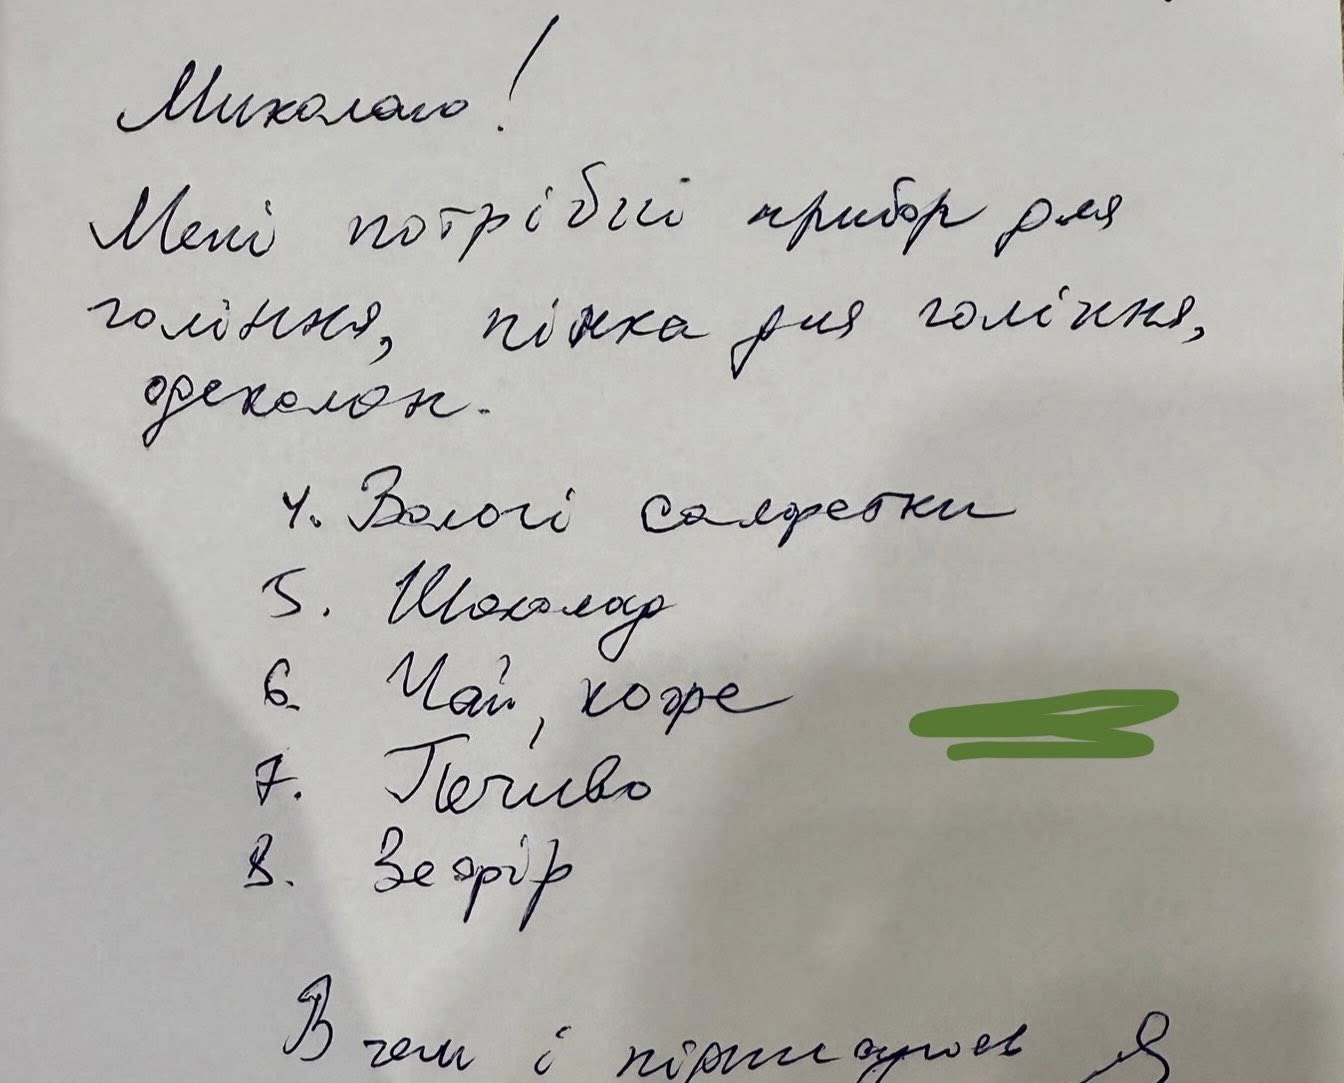 Миколаю!
Мені потрібні прибор для
гоління, пінка для гоління,
одеколон.
4. Вологі салфетки
5. Шоколад
6. Чай, кофе
7. Печиво
8. Зефір
В чем і підписуюсь